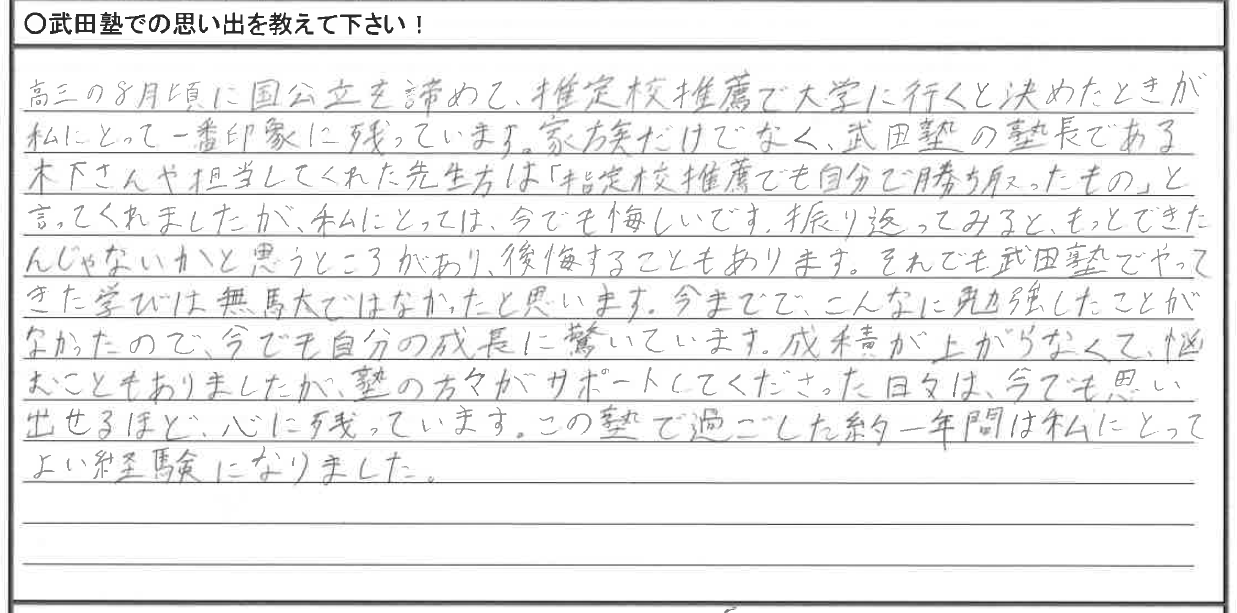 〇武田塾での思い出を教えて下さい！
高三の8月頃に国公立を諦めて、推定校推薦で大学に行くと決めたときが
私にとって一番印象に残っています。家族だけでなく、武田塾の塾長である
木下さんや担当してくれた先生方は「指定校推薦でも自分で勝ち取ったもの」と
言ってくれましたが、私にとっては、今でも悔しいです。振り返ってみると、もっとできた
んじゃないかと思うところがあり、後悔することもあります。それでも武田塾でやって
きた学びは無駄ではなかったと思います。今までで、こんなに勉強したことが
なかったので、今でも自分の成長に驚いています。成績が上がらなくて、悩
むこともありましたが、塾の方々がサポートしてくださった日々は、今でも思い
出せるほど、心に残っています。この塾で過ごした約一年間は私にとって
よい経験になりました。